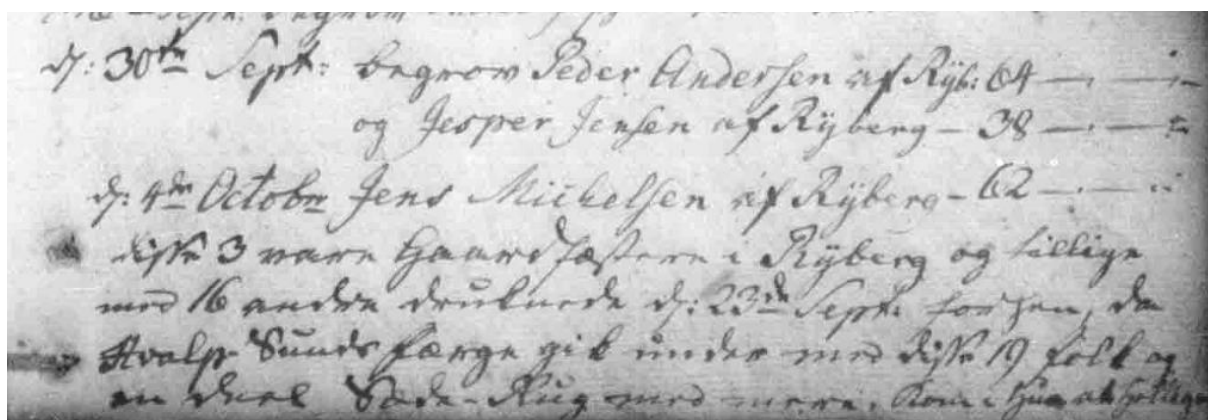 d: 30te Sept: begrov Peder Andersen af Ryb: 64
og Jesper Jensen af Ryberg - 38
d: 4de Octobr Jens Michelsen af Ryberg - 62
disse 3 vare Gaardfæstere i Ryberg og tillige
med 16 andre druknede d: 23de Sept. da
Hvalp Sunds færge gik under med disse 19 folk og
en deel Sæde-Rug med mere.